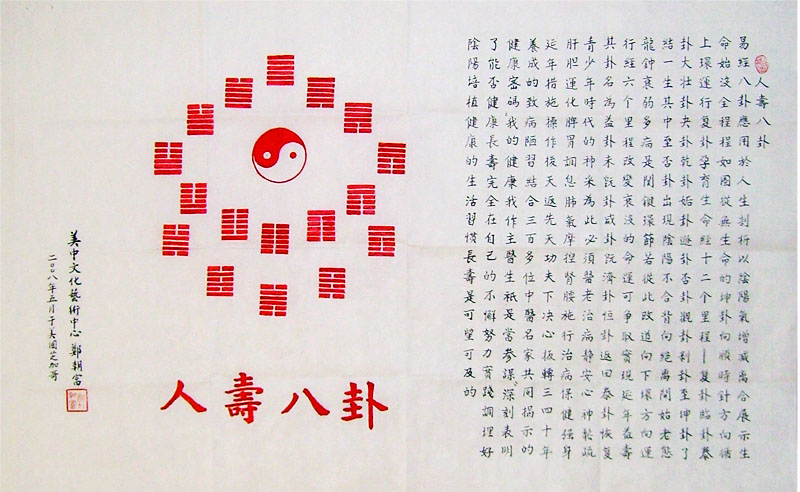 人壽八卦
易經八卦應用於人生剖析以陰陽氣增減离合展示生
命始沒全程程如圖從無生命的坤卦向順時針方向循
上環運行复卦孕育生命經十二个里程—复卦臨卦泰
卦大壯卦夬卦乾卦姤卦遯卦否卦觀卦剝卦至坤卦了
結一生其中至否卦出現陰陽不合背向絕离開始老態
龍鍾衰弱多病是関鍵環節若從此改道向下環方向運
行經六个里程改變衰沒的命運可爭取實現延年益壽
其卦名為益卦未既卦或卦既濟卦恒卦返回泰卦恢复
青少年時代的神采為此必須醫老治病静安心神鬆疏
肝胆運化脾胃調息肺氣摩捏腎腰施行治病保健强身
延年措施操作後天返先天功夫下决心扳轉三四十年
養成的致病陋習結合三百多位中醫名家共同揭示的
健康密碼“我的健康我作主醫生祇是當参謀”深刻表明
了能否健康長壽完全在自己的不懈努力實踐調理好
陰陽培植健康的生活習慣長壽是可望可及的
人壽八卦
美中文化藝術中心 鄭朝富
二〇〇八年五月于美國芝加哥